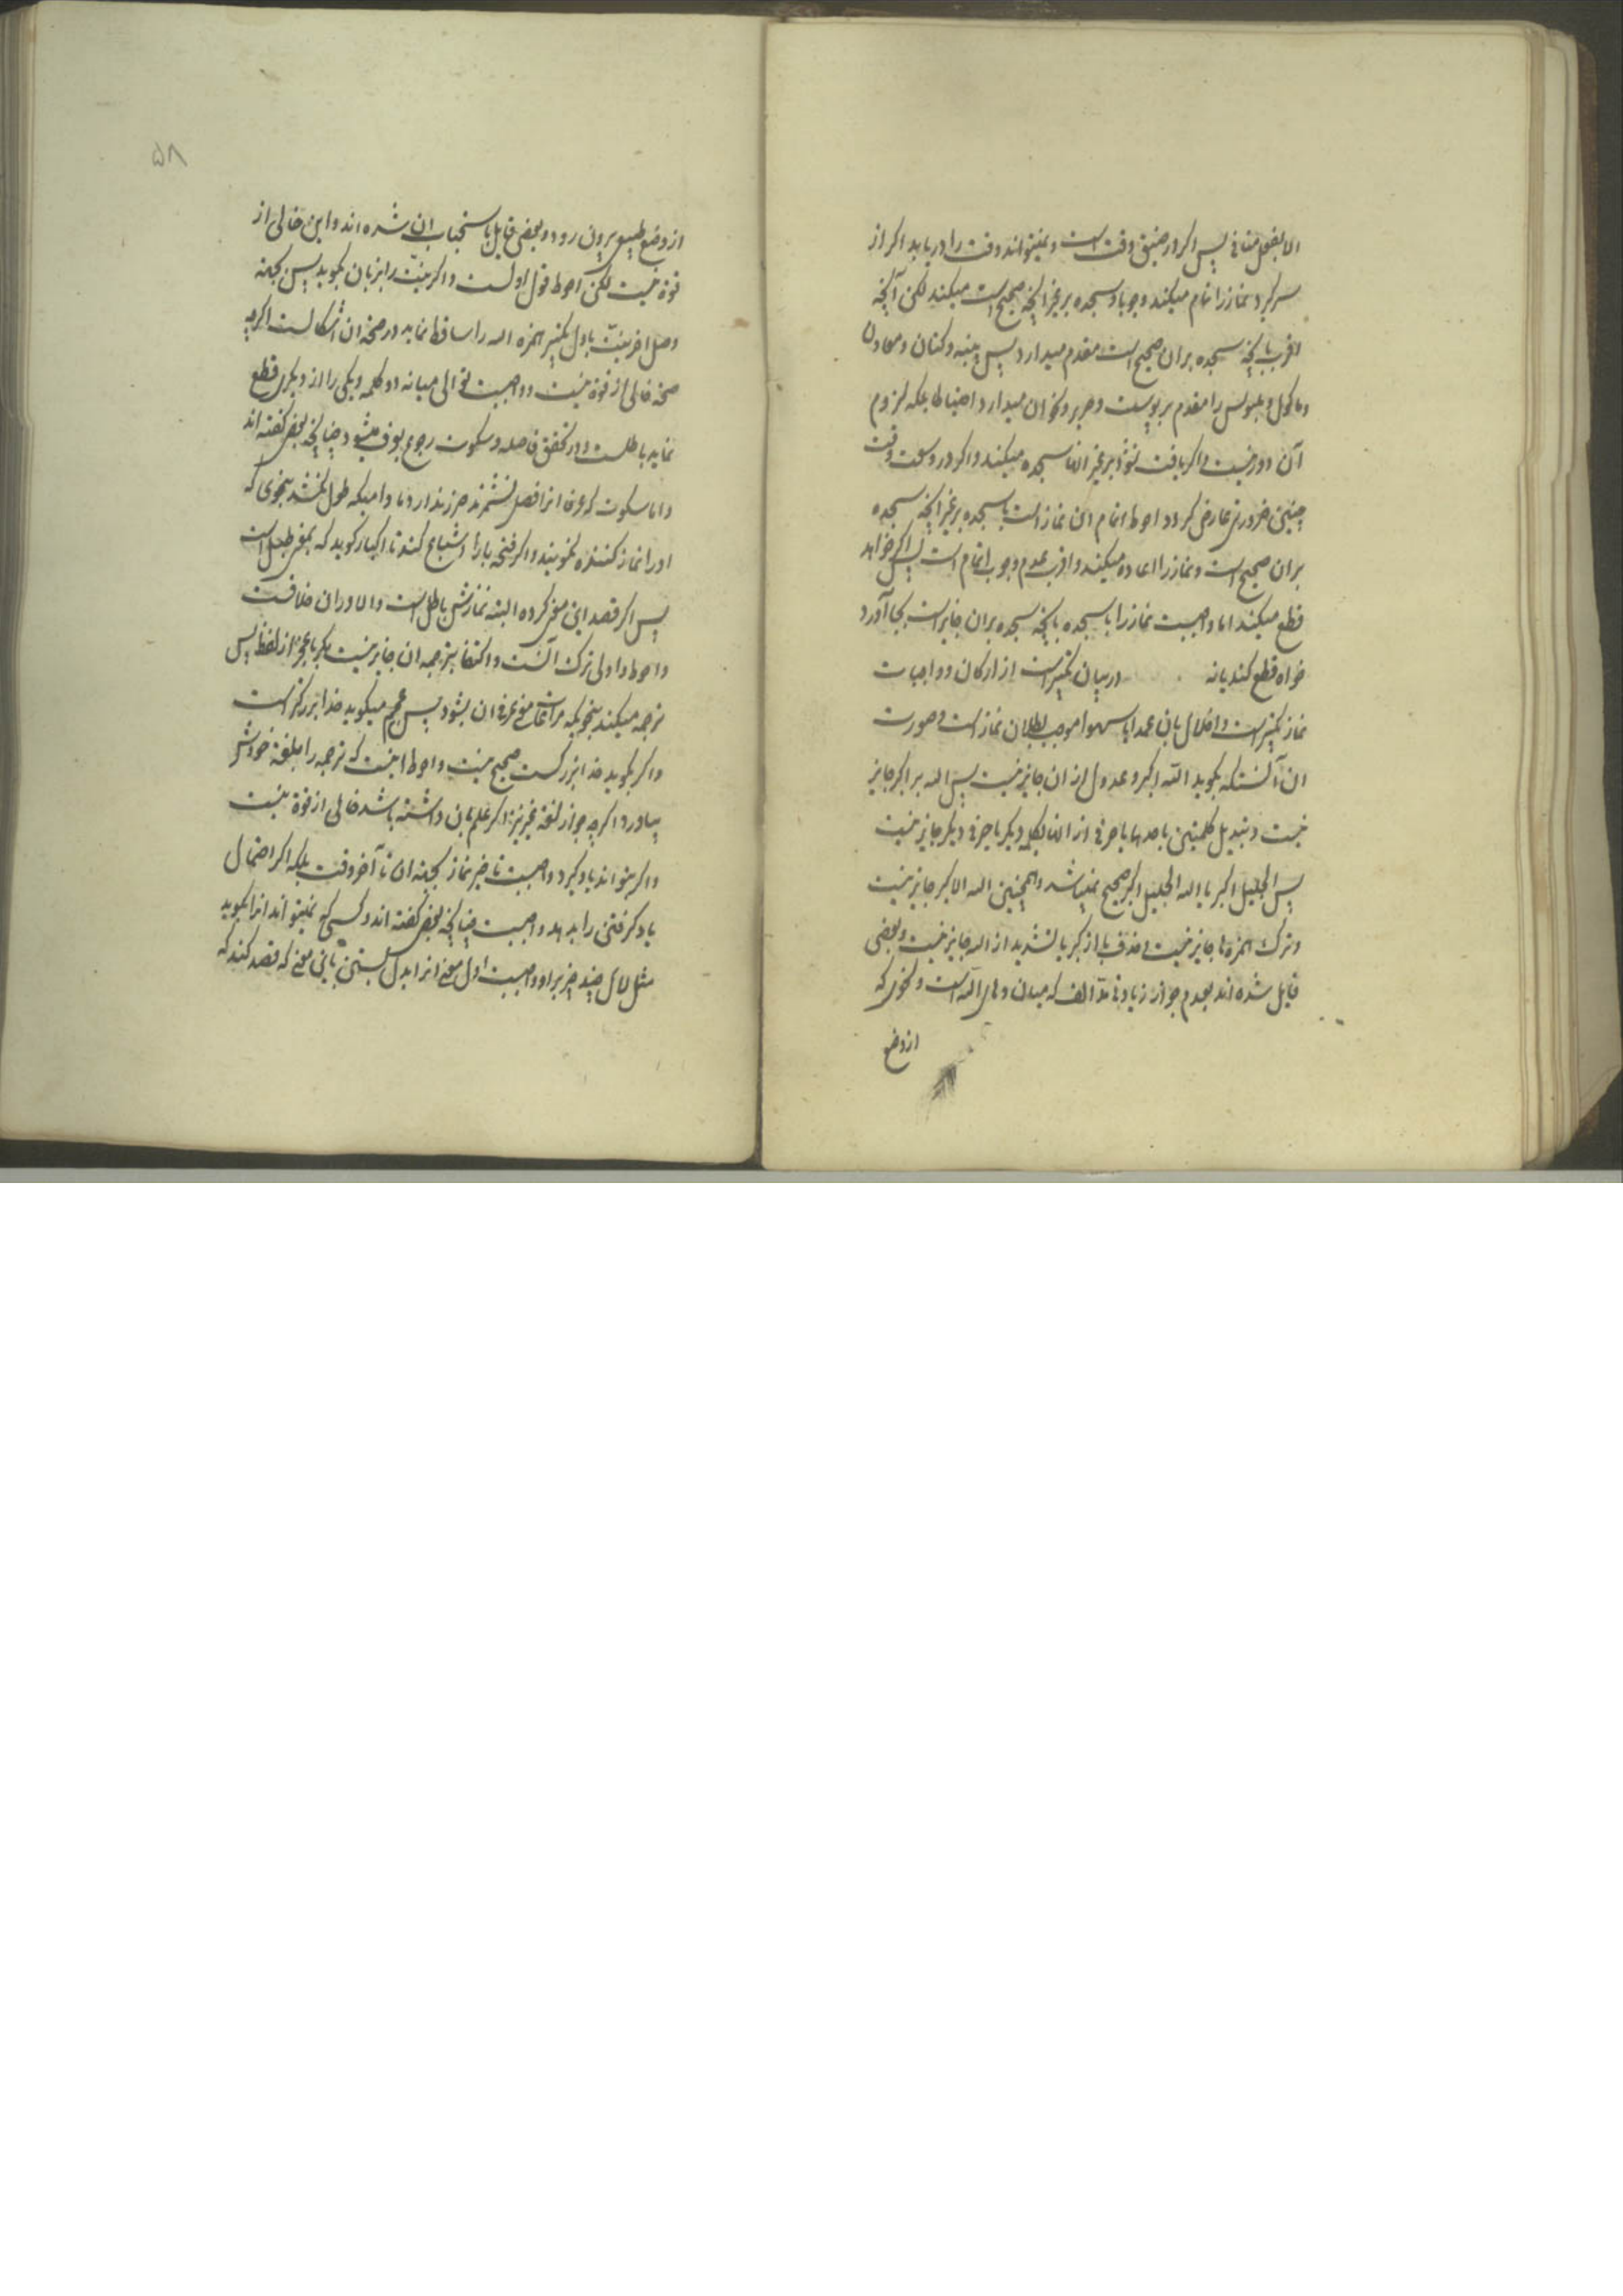 الا بفعل منافی پس اگر در ضیق وقت است و نمیتواند وقت را دریابد اگر از
سر گیرد نماز را تمام میکند وجوبا و سجده بر غیر آنچه صحیح است میکند لکن آنچه
اقرب بآنچه سجده بران صحیح است مقدم میدارد پس پنبه و کتان و معادن
و ماکول و ملبوس را مقدم بر پوست و حریر و نحو ان میدارد احتیاطا بلکه لزوم
آن دور نیست و اگر یافت نشود بر غیر انها سجده میکند و اگر در وسعت وقت
چنین ضرورتی عارض گردد احوط اتمام ان نماز است با سجده بر غیر آنچه سجده
بران صحیح است و نماز را اعاده میکند و اقرب عدم وجوب اتمام است پس اگر خواهد
قطع میکند اما واجبست نماز را با سجده بآنچه سجده بران جایز است بجا آورد
خواه قطع کند یا نه در بیان تکبیر است از ارکان و واجبات
نماز تکبیر است و اخلال بان عمدا یا سهوا موجب بطلان نماز است و صورت
ان آنستکه بگوید الله اکبر و عدول از ان جایز نیست پس الله بر اکبر جایز
نیست و تبدیل کلمتین با حدیها یا حرفی از انها بکلمه دیگر یا حرفی دیگر جایز نیست
پس الجلیل اکبر یا الله الجلیل اکبر صحیح نمیباشد و همچنین الله الاکبر جایز نیست
و ترک همزه ها جایز نیست و حذف با از اکبر یا تشدید از الله جایز نیست و بعضی
قایل شده اند بعدم جواز زیادتی مد الف که میان و های الله است و نحوی که
از وضع
۵۸
از وضع طبیعی بیرون رود و بعضی قایل باستحباب ان شده اند و این خالی از
قوة نیست لکن احوط قول اولست و اگر نیّت را بزبان بگوید پس بجهته
وصل اخر نیّت باول تکبیر همزه الله را ساقط نماید در صحة ان اشکالست اگرچه
صحة خالی از قوة نیست و واجبست توالی میانه دو کلمه و یکی را از دیگری قطع
نماید باطلست و در تحقق فاصله و سکوت رجوع بعرف میشود چنانچه بعضی گفته اند
و اما سکوت که عرفا انرا فصل نشمرند ضرر ندارد مادامیکه طول نکشد بنحوی که
او را نماز کننده نگویند و اگر فتحه با را اشباع کند تا اکبار گوید که بمعنی طبل است
پس اگر قصد این معنی کرده البته نمازش باطل است و الا در ان خلافست
و احوط و اولی ترک آنست و اکتفا بترجمه ان جایز نیست مگر با عجز از لفظ پس
ترجمه میکند بنحویکه مراعات معنی عرفی ان بشود پس عجم میگوید خدا بزرگتر است
و اگر بگوید خدا بزرگست صحیح نیست و احوط اینست که ترجمه را بلغة خودش
بیاورد اگرچه جواز لغة غیر نیز اگر علم بان داشته باشد خالی از قوة نیست
و اگر بتواند یاد گیرد واجبست تاخیر نماز بجهته ان تا آخر وقت بلکه اگر احتمال
یاد گرفتن را بدهد واجبست چنانچه بعضی گفته اند و کسی که نمیتواند انرا بگوید
مثل لال چند چیز بر او واجبست اول معنی انرا بدل بستن باین معنی که قصد کند که